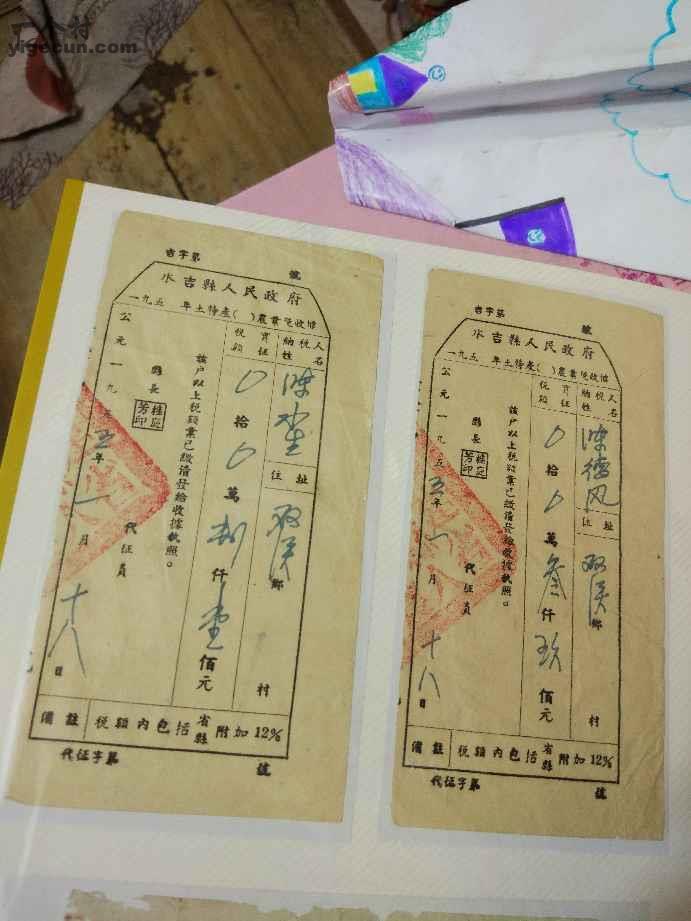 一个村
yigecun.com
吉字第 號
水吉縣人民政府
一九五 年土特產( )農業稅收據
納稅人姓名
陳
住址
双溪鄉
村
實征稅額
0拾0萬 仟壹佰元
該户以上稅額業已繳清發給收據執照。
縣長
代征員
公元一九五五年一月十八日
備註
稅額內包括省縣附加12%
代征字第 號
吉字第 號
水吉縣人民政府
一九五 年土特產( )農業稅收據
納稅人姓名
陳德风
住址
双溪鄉
村
實征稅額
0拾0萬叁仟玖佰元
該户以上稅額業已繳清發給收據執照。
縣長
代征員
公元一九五五年一月十八日
備註
稅額內包括省縣附加12%
代征字第 號